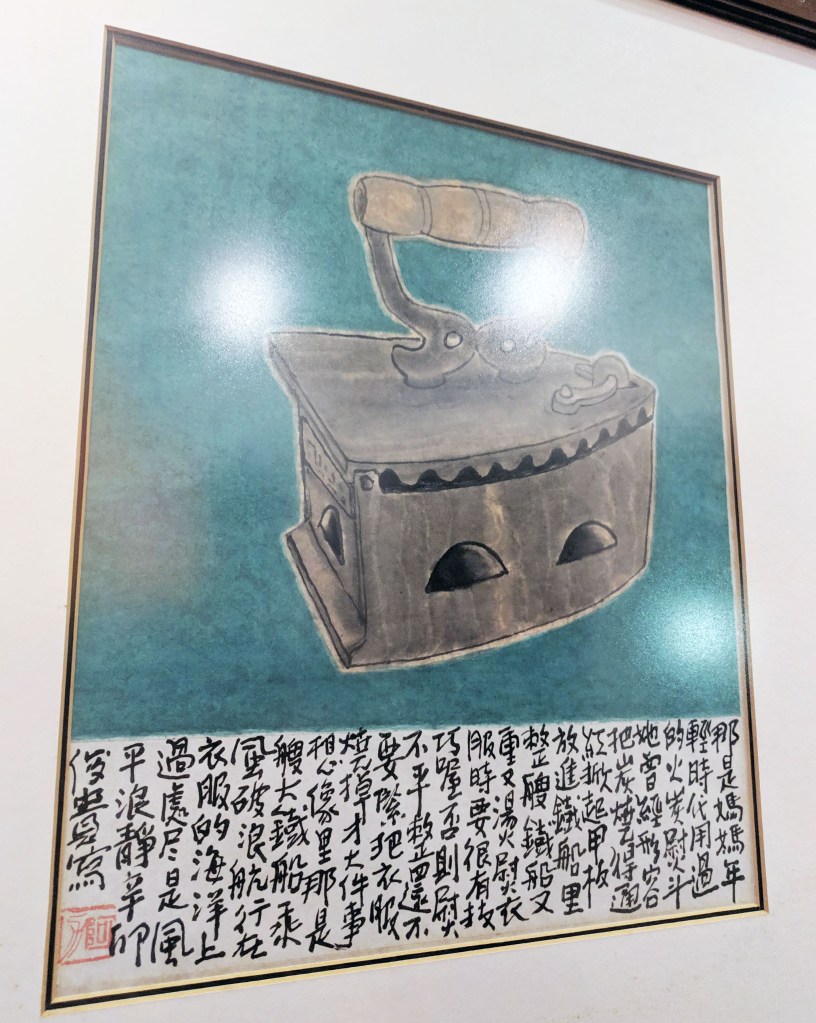 那是媽媽年
輕時代用過
的火炭熨斗
她曾經形容
把炭燒得通
紅掀起甲板
放進鐵船里
整艘鐵船又
重又燙熨衣
服時要很有技
巧喔否則熨
不平整還不
要緊把衣服
燒掉才大件事
想像里那是
艘大鐵船乘
風破浪航行在
衣服的海洋上
過處尽是風
平浪靜辛卯
俊寫